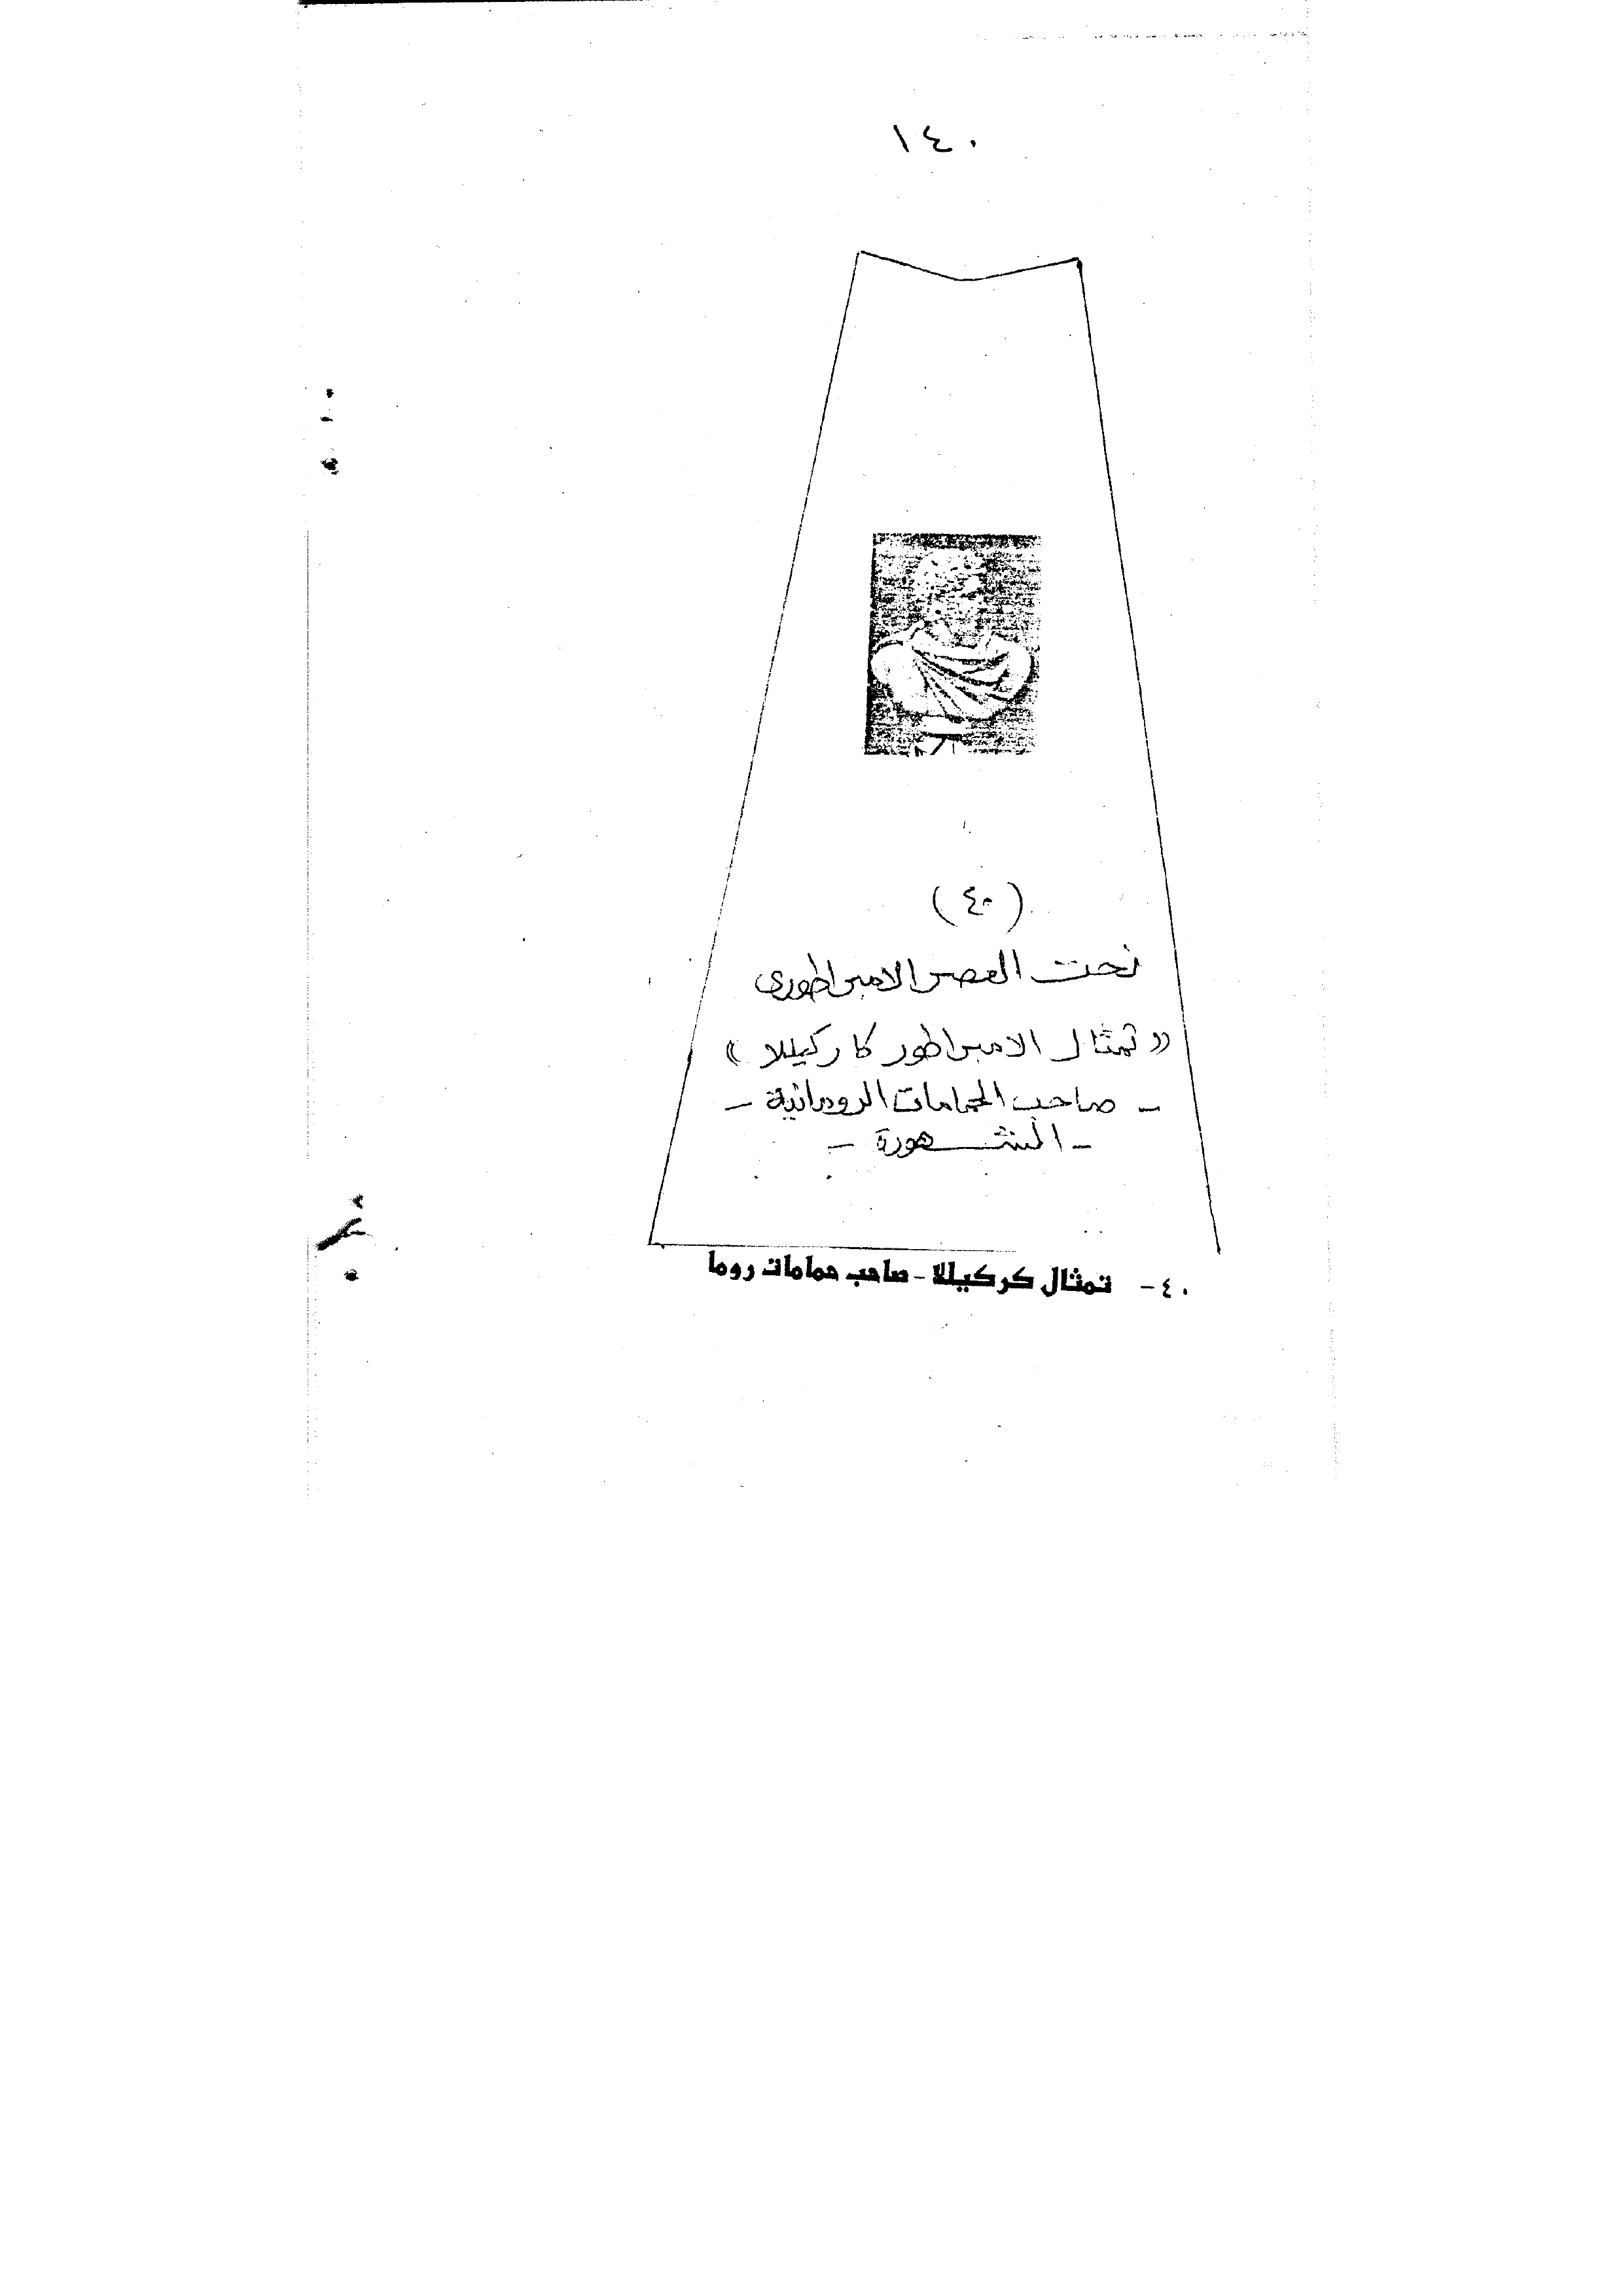 ١٤٠
(٤٠)
نحت العصر الامبراطورى
«تمثال الامبراطور كاركيللا»
- صاحب الحمامات الرومانية -
- الشهورة -
٤٠- تمثال كركيللا - صاحب حمامات روما